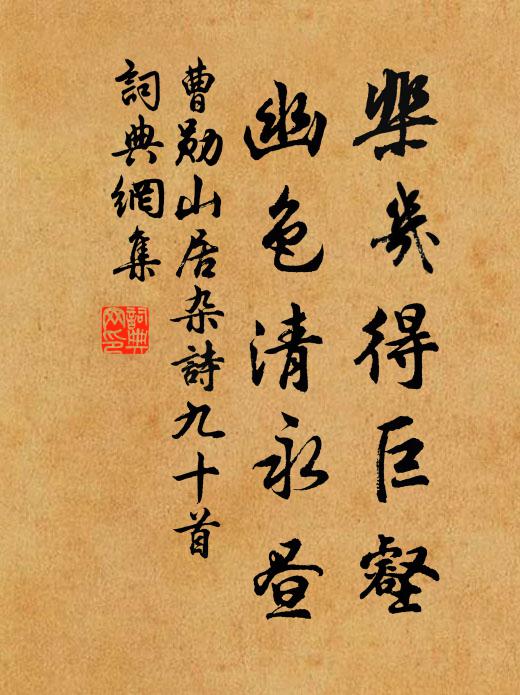 棐幾得巨壑
幽色清永昼
曹勛山居杂詩九十首
詞典網集
詞典网印